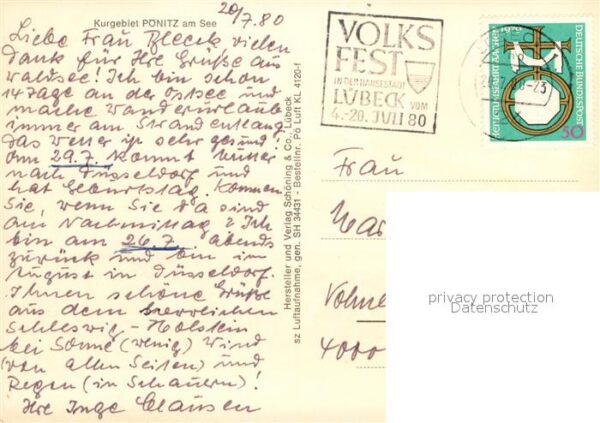 Kurgebiet PÖNITZ am See
20/7.80
Liebe Frau Bleeck vielen
dank für Ihre Grüße aus
waldsee! Ich bin schon
14 Tage an der Ostsee und
mache Wanderurlaub
immer am Strand entlang
das wetter ist sehr gesund!
am 29.7. kommt
nach Düsseldorf und
hat Geburtstag. Kommen
Sie, wenn Sie da sind
am Nachmittag? Ich
bin am 26.7. abends
zurück und bin im
August in Düsseldorf.
Ihnen schöne Grüße
aus dem herrlichen
Schleswig-Holstein
bei Sonne (wenig) Wind
(von allen Seiten) und
Regen (in Schauern)!
Ihre Inge Clausen
Hersteller und Verlag Schöning & Co., Lübeck
sz Luftaufnahme, gen. SH 34431 - Bestellnr. Pö Luft KL 4120-f
VOLKS
FEST
IN DER HANSESTADT
LÜBECK VOM
4.-20. JULI 80
DEUTSCHE BUNDESPOST
HEILIGTUMSFAHRT AACHEN
1979
50
Frau
Mar
Volme
4000
privacy protection
Datenschutz